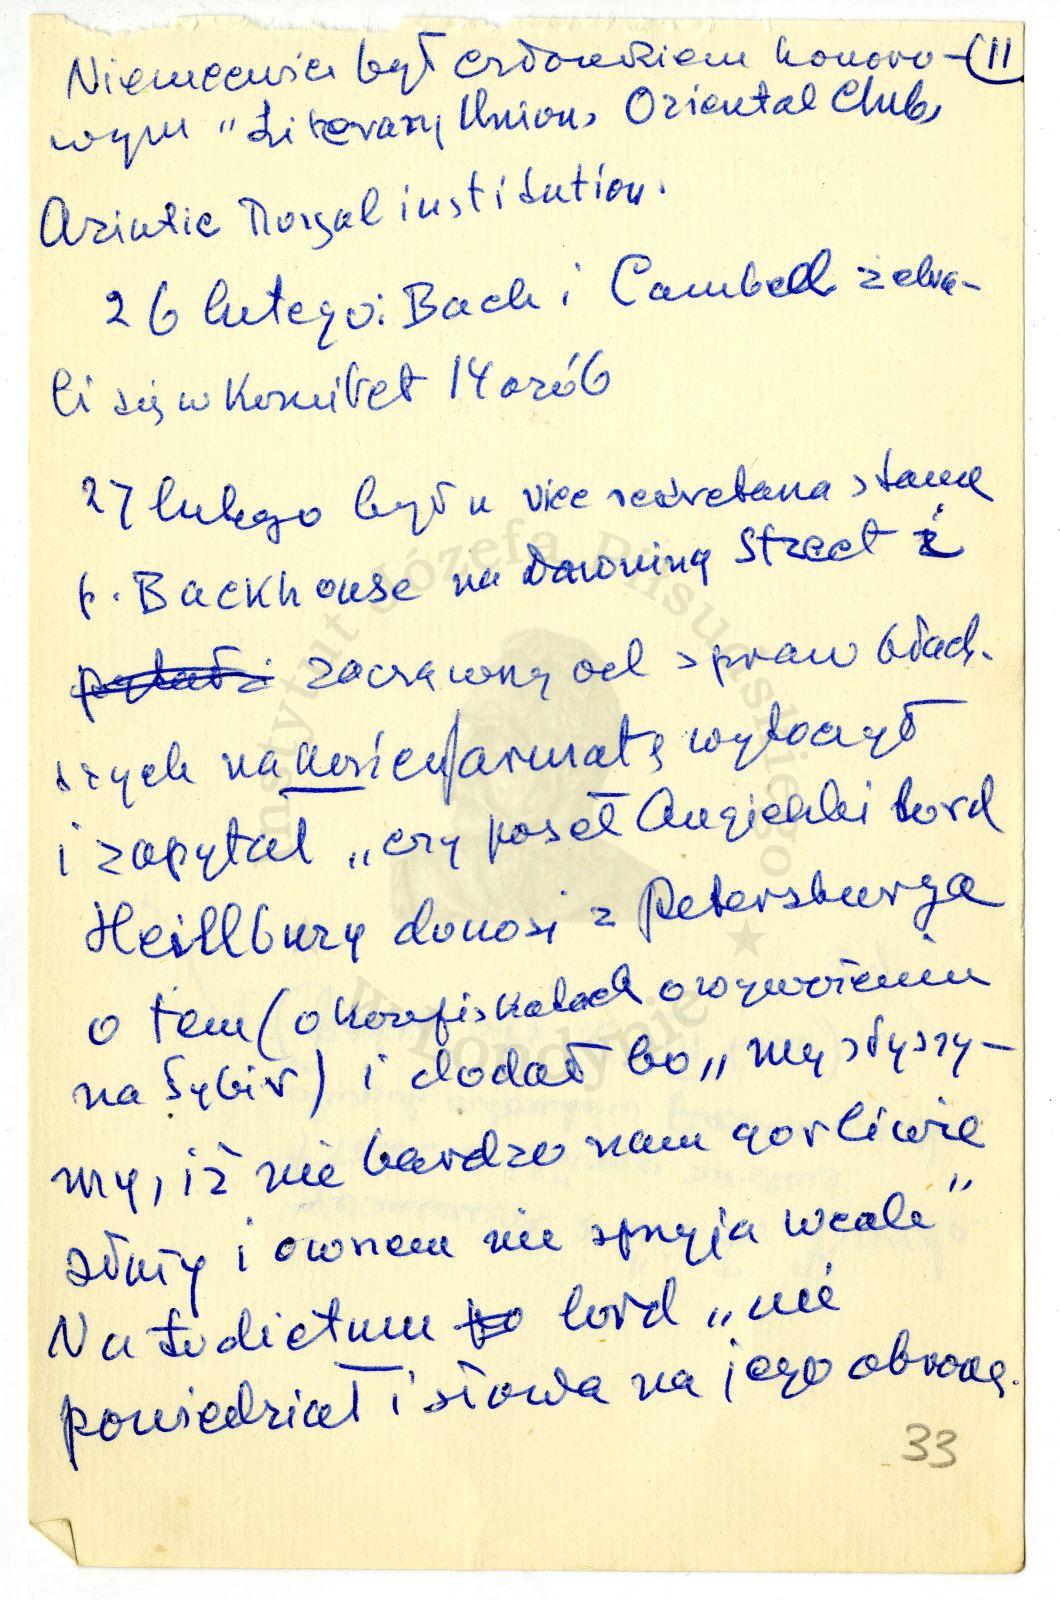 Niemcewicz był członkiem honoro- 11
wym "Literary Union, Oriental Club,
Aziatic Royal institution.
26 lutego: Bach i Cambell zebra-
li się w Komitet 14 osób
27 lutego był u vice sekretarza stanu
p. Backhouse na Downing Street i
zacząwszy od spraw błach-
szych na koniec armatę wytoczył
i zapytał „czy poseł Angielski Lord
Heillbury donosi z Petersburga
o tem (o konfiskatach o wywożeniu
na Sybir) i dodał bo „my słyszy-
my, iż nie bardzo nam gorliwie
służy i owszem nie sprzyja wcale"
Na to dictum lord „nie
powiedział i słowa na jego obronę.
33
Instytut Józefa Piłsudskiego
w Londynie